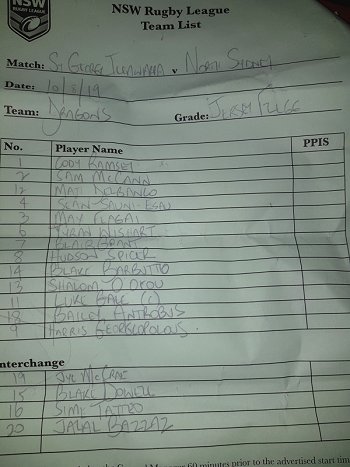 NSW
RUGBY LEAGUE
NSW Rugby League
Team List
Match: St George Illawarra v North Sydney
Date: 10/8/19
Team: Dragons Grade: Jersey Flegg
No. Player Name PPIS
1 Cody Ramsey
2 Sam McCann
12 Mat
4 Sean Sauni-Esau
3 Max Feagai
6 Tyran Wishart
7 Blair Grant
8 Hudson Spicer
14 Blake Barbutto
13 Shalom O Ofou
11 Luke Bale (c)
18 Bailey Antrobus
9 Harris Georgiopolous
nterchange
19
15 Blake Dowel
16
20 Jalal Bazzaz
60 minutes prior to the advertised start tim